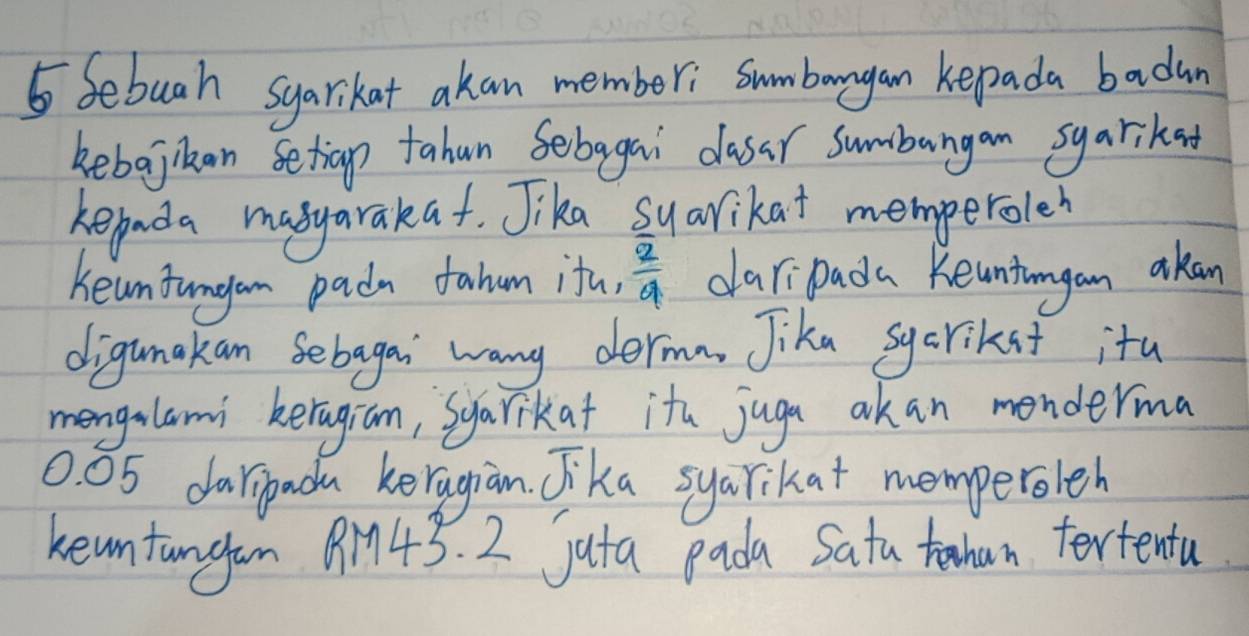 5 Sebuah syarikat akan memberi sumbangan kepada badan
kebajikan setiap tahun sebagai dasar sumbangan syarikat
kepada masyarakat. Jika syarikat memperoleh
keuntungan pada tahun itu, 2/9 daripada keuntungan akan
digunakan sebagai wang derma. Jika syarikat itu
mengalami kerugian, syarikat itu juga akan menderma
0.05 daripada kerugian. Jika syarikat memperoleh
keuntungan RM43.2 juta pada satu tahun tertentu